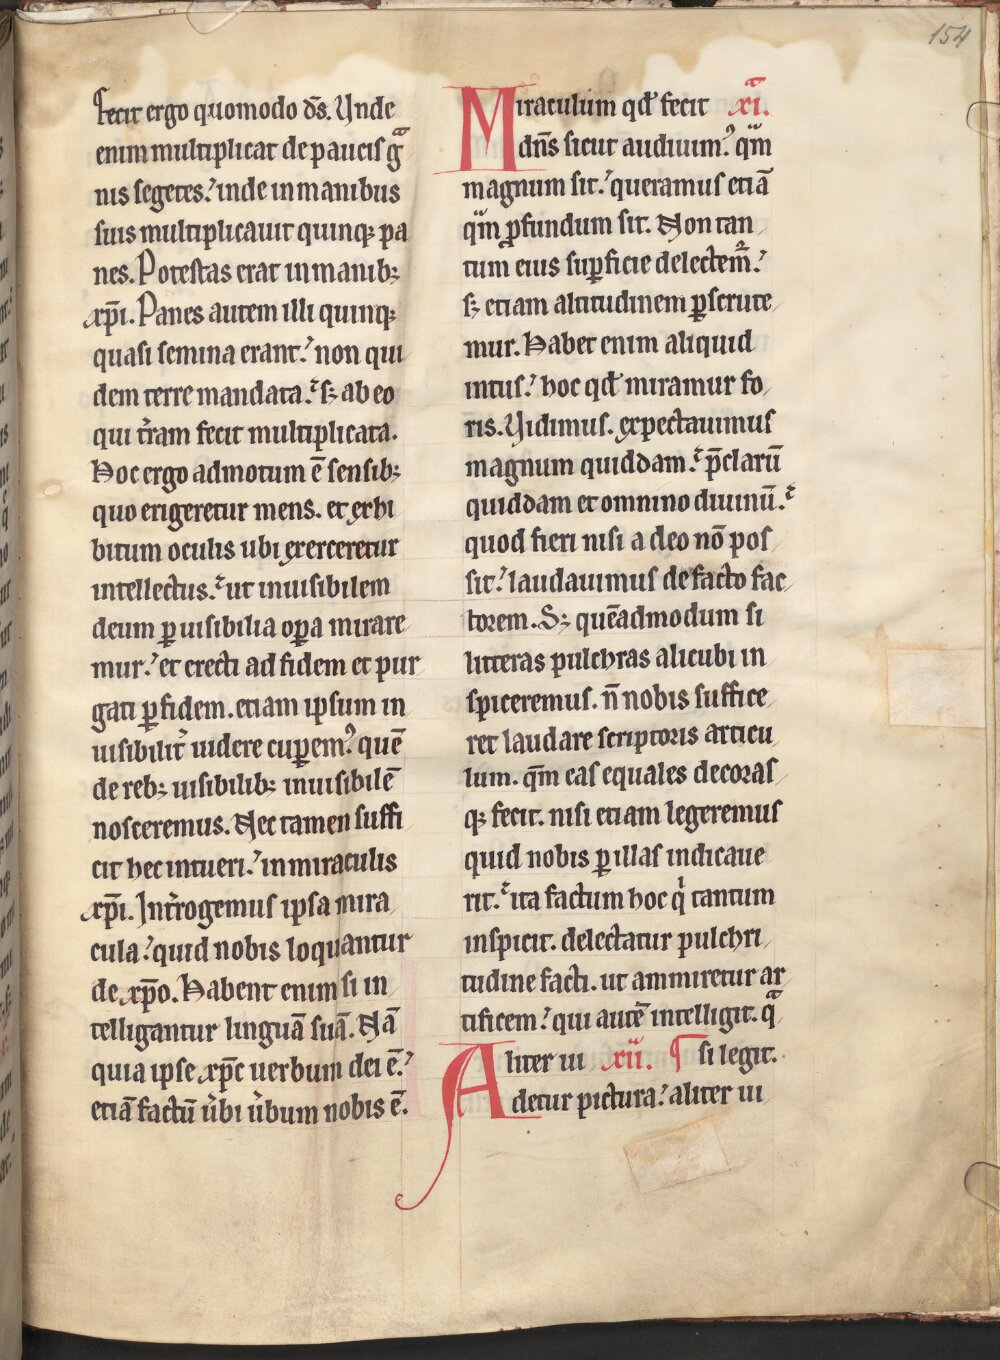 154
fecit ergo quomodo ds̄. Vnde
enim multiplicat de paucis gͣ
nis segetes.ʾ inde in manibus
suis multiplicauit quinqꝫ pa
nes. Potestas erat in manibꝫ
xp̄i. Panes autem illi quinqꝫ
quasi semina erant.ʾ non qui
dem terre mandata.ʾ sꝫ ab eo
qui t̄ram fecit multiplicata.
Hoc ergo admotum ē sensibꝫ
quo erigeretur mens. et exhi
bitum oculis ubi exerceretur
intellectus.ʾ ut inuisibilem
deum ꝑ uisibilia oꝑa mirare
mur.ʾ et erecti ad fidem et pur
gati ꝑ fidem. etiam ipsum in
uisibilit̄ uidere cuꝑem.ʾ quē
de rebꝫ uisibilibꝫ inuisibilē
nosceremus. Nec tamen suffi
cit hec intueri.ʾ in miraculis
xp̄i. Int̄rogemus ipsa mira
cula.ʾ quid nobis loquantur
de xp̄o. Habent enim si in
telligantur linguā suā. Nā
quia ipse xp̄c uerbum dei ē.ʾ
etiā factū u̇bi u̇bum nobis ē.
Miraculum qd̄ fecit xi.
dn̄s sicut audiuim᾿.ʾ qͣm
magnum sit.ʾ queramus etiā
qͣm ꝓfundum sit. Non tan
tum eius suꝑficie delectem᷑.ʾ
sꝫ etiam altitudinem ꝑscrute
mur. Habet enim aliquid
intus.ʾ hoc qd̄ miramur fo
ris. Vidimus. expectauimus
magnum quiddam.ʾ p̄clarū
quiddam et omnino diuinū.ʾ
quod fieri nisi a deo nō pos
sit.ʾ laudauimus de facto fac
torem. Sꝫ quēadmodum si
litteras pulchras alicubi in
spiceremus. n̄ nobis suffice
ret laudare scriptoris articu
lum. qm̄ eas equales decoras
qꝫ fecit. nisi etiam legeremus
quid nobis ꝑ illas indicaue
rit.ʾ ita factum hoc qͥ tantum
inspicit. delectatur pulchri
tudine facti. ut ammiretur ar
tificem.ʾ qui autē intelligit. qͣ
Aliter ui xii. ¶ si legit.
detur pictura.ʾ aliter ui